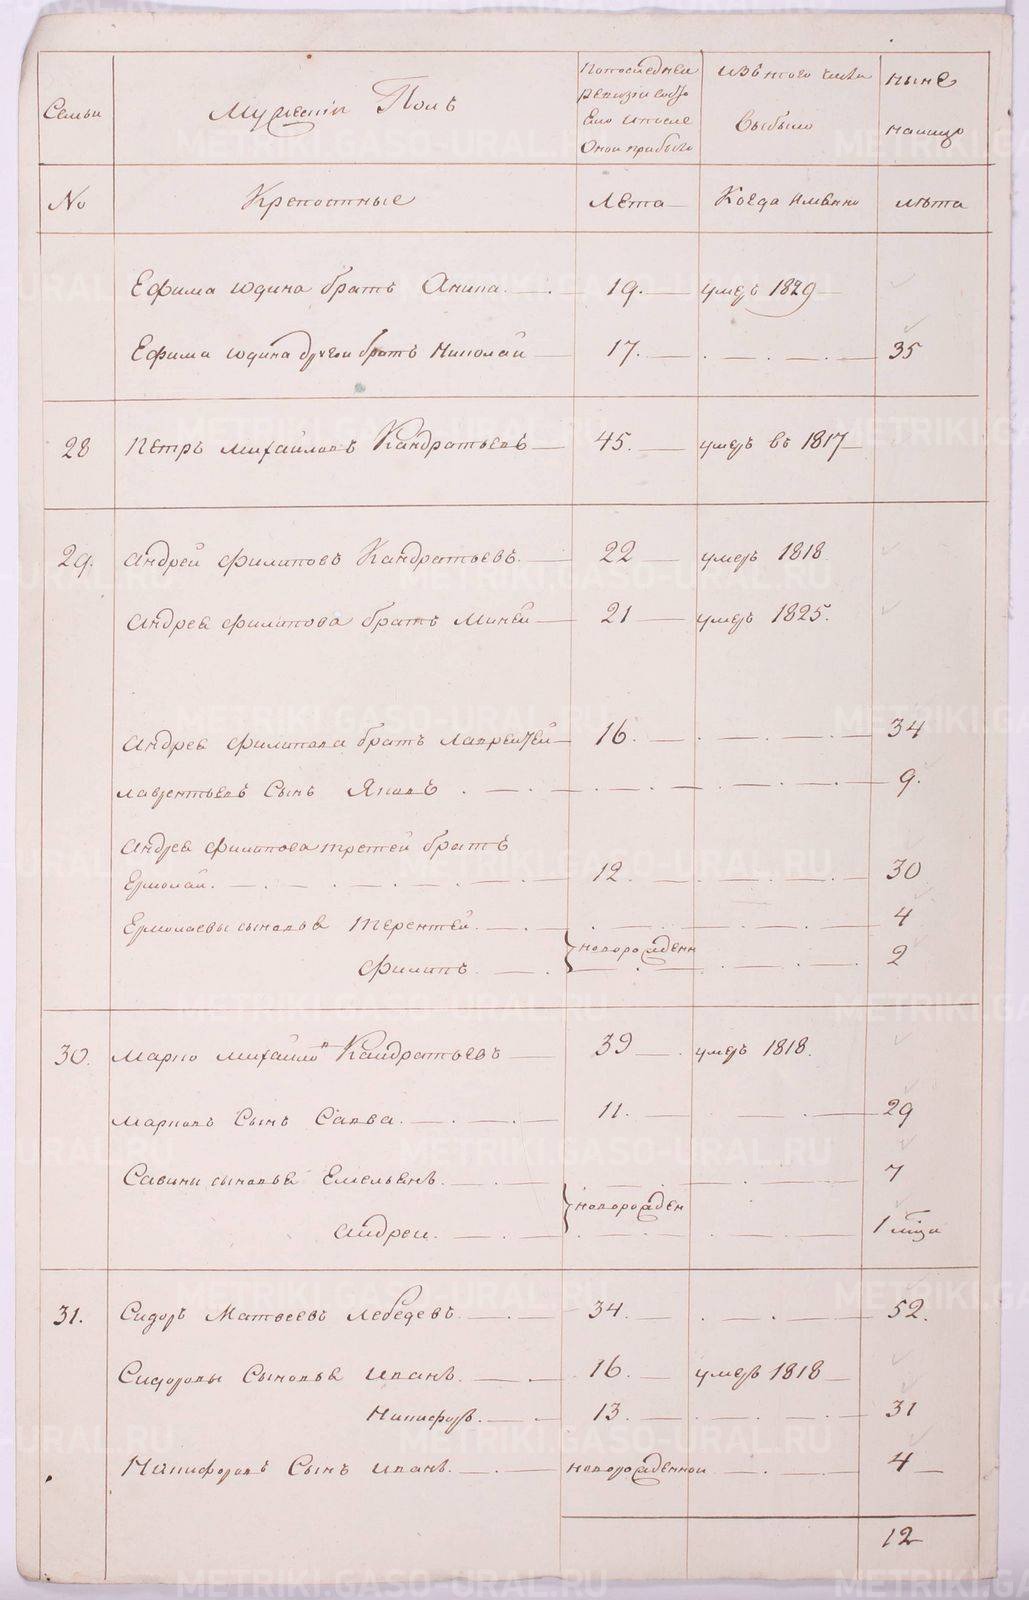 Семьи
Мужескiй Полъ
По последней
Ревизiи
было и после
Оной прибыло
изъ того числа
Выбыло
ныне
на лицо
No
Крепостные
Лета
Когда имянно
лета
Ефима Юдина братъ Аника. 19. умеръ 1829
Ефима Юдина другой братъ Николай 17. 35
28 Петръ Михайловъ Кандратьевъ 45. умеръ въ 1817
29. Андрей Филиповъ Кандратьевъ. 22 умеръ 1818
Андрея Филипова братъ Миней 21 умеръ 1825.
Андрея Филипова братъ Лаврентей 16. 34
Лаврентьевъ Сынъ Яковъ. 9.
Андрея Филипова третей братъ
Ермолай. 12. 30
Ермолаевы сыновья Терентей. 4
новорожденн
Филипъ. 2
30. Марко Михайловъ Кандратьевъ 39 умеръ 1818.
Марковъ Сынъ Савва. 11. 29
Савины сыновья Емельянъ. 7
новорожден
Андреи. 1 м̃ца
31. Сидоръ Матвеевъ Лебедевъ. 34. 52.
Сидоровы Сыновья Иванъ. 16. умеръ 1818
Никифоръ. 13. 31
Никифоровъ Сынъ Иванъ. новорожденной 4
12
METRIKI.GASO-URAL.RU